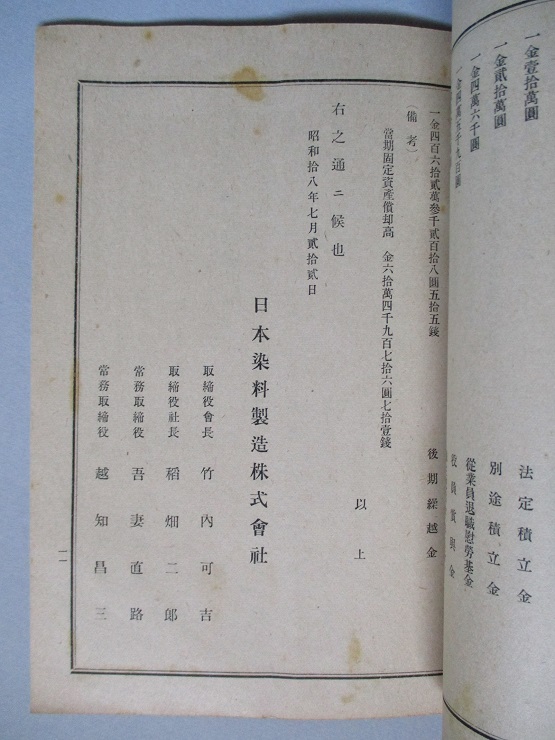 一金壹拾萬圓　法定積立金
一金貳拾萬圓　別途積立金
一金四萬六千圓　從業員退職慰勞基金
役員賞與金
一金四百六拾貳萬參千貳百拾八圓五拾五錢　後期繰越金
（備考）
當期固定資產償却高　金六拾萬四千九百七拾六圓七拾壹錢
以上
右之通ニ候也
昭和拾八年七月貳拾貳日
日本染料製造株式會社
取締役會長　竹內可吉
取締役社長　稻畑二郎
常務取締役　吾妻直路
常務取締役　越知昌三
一一